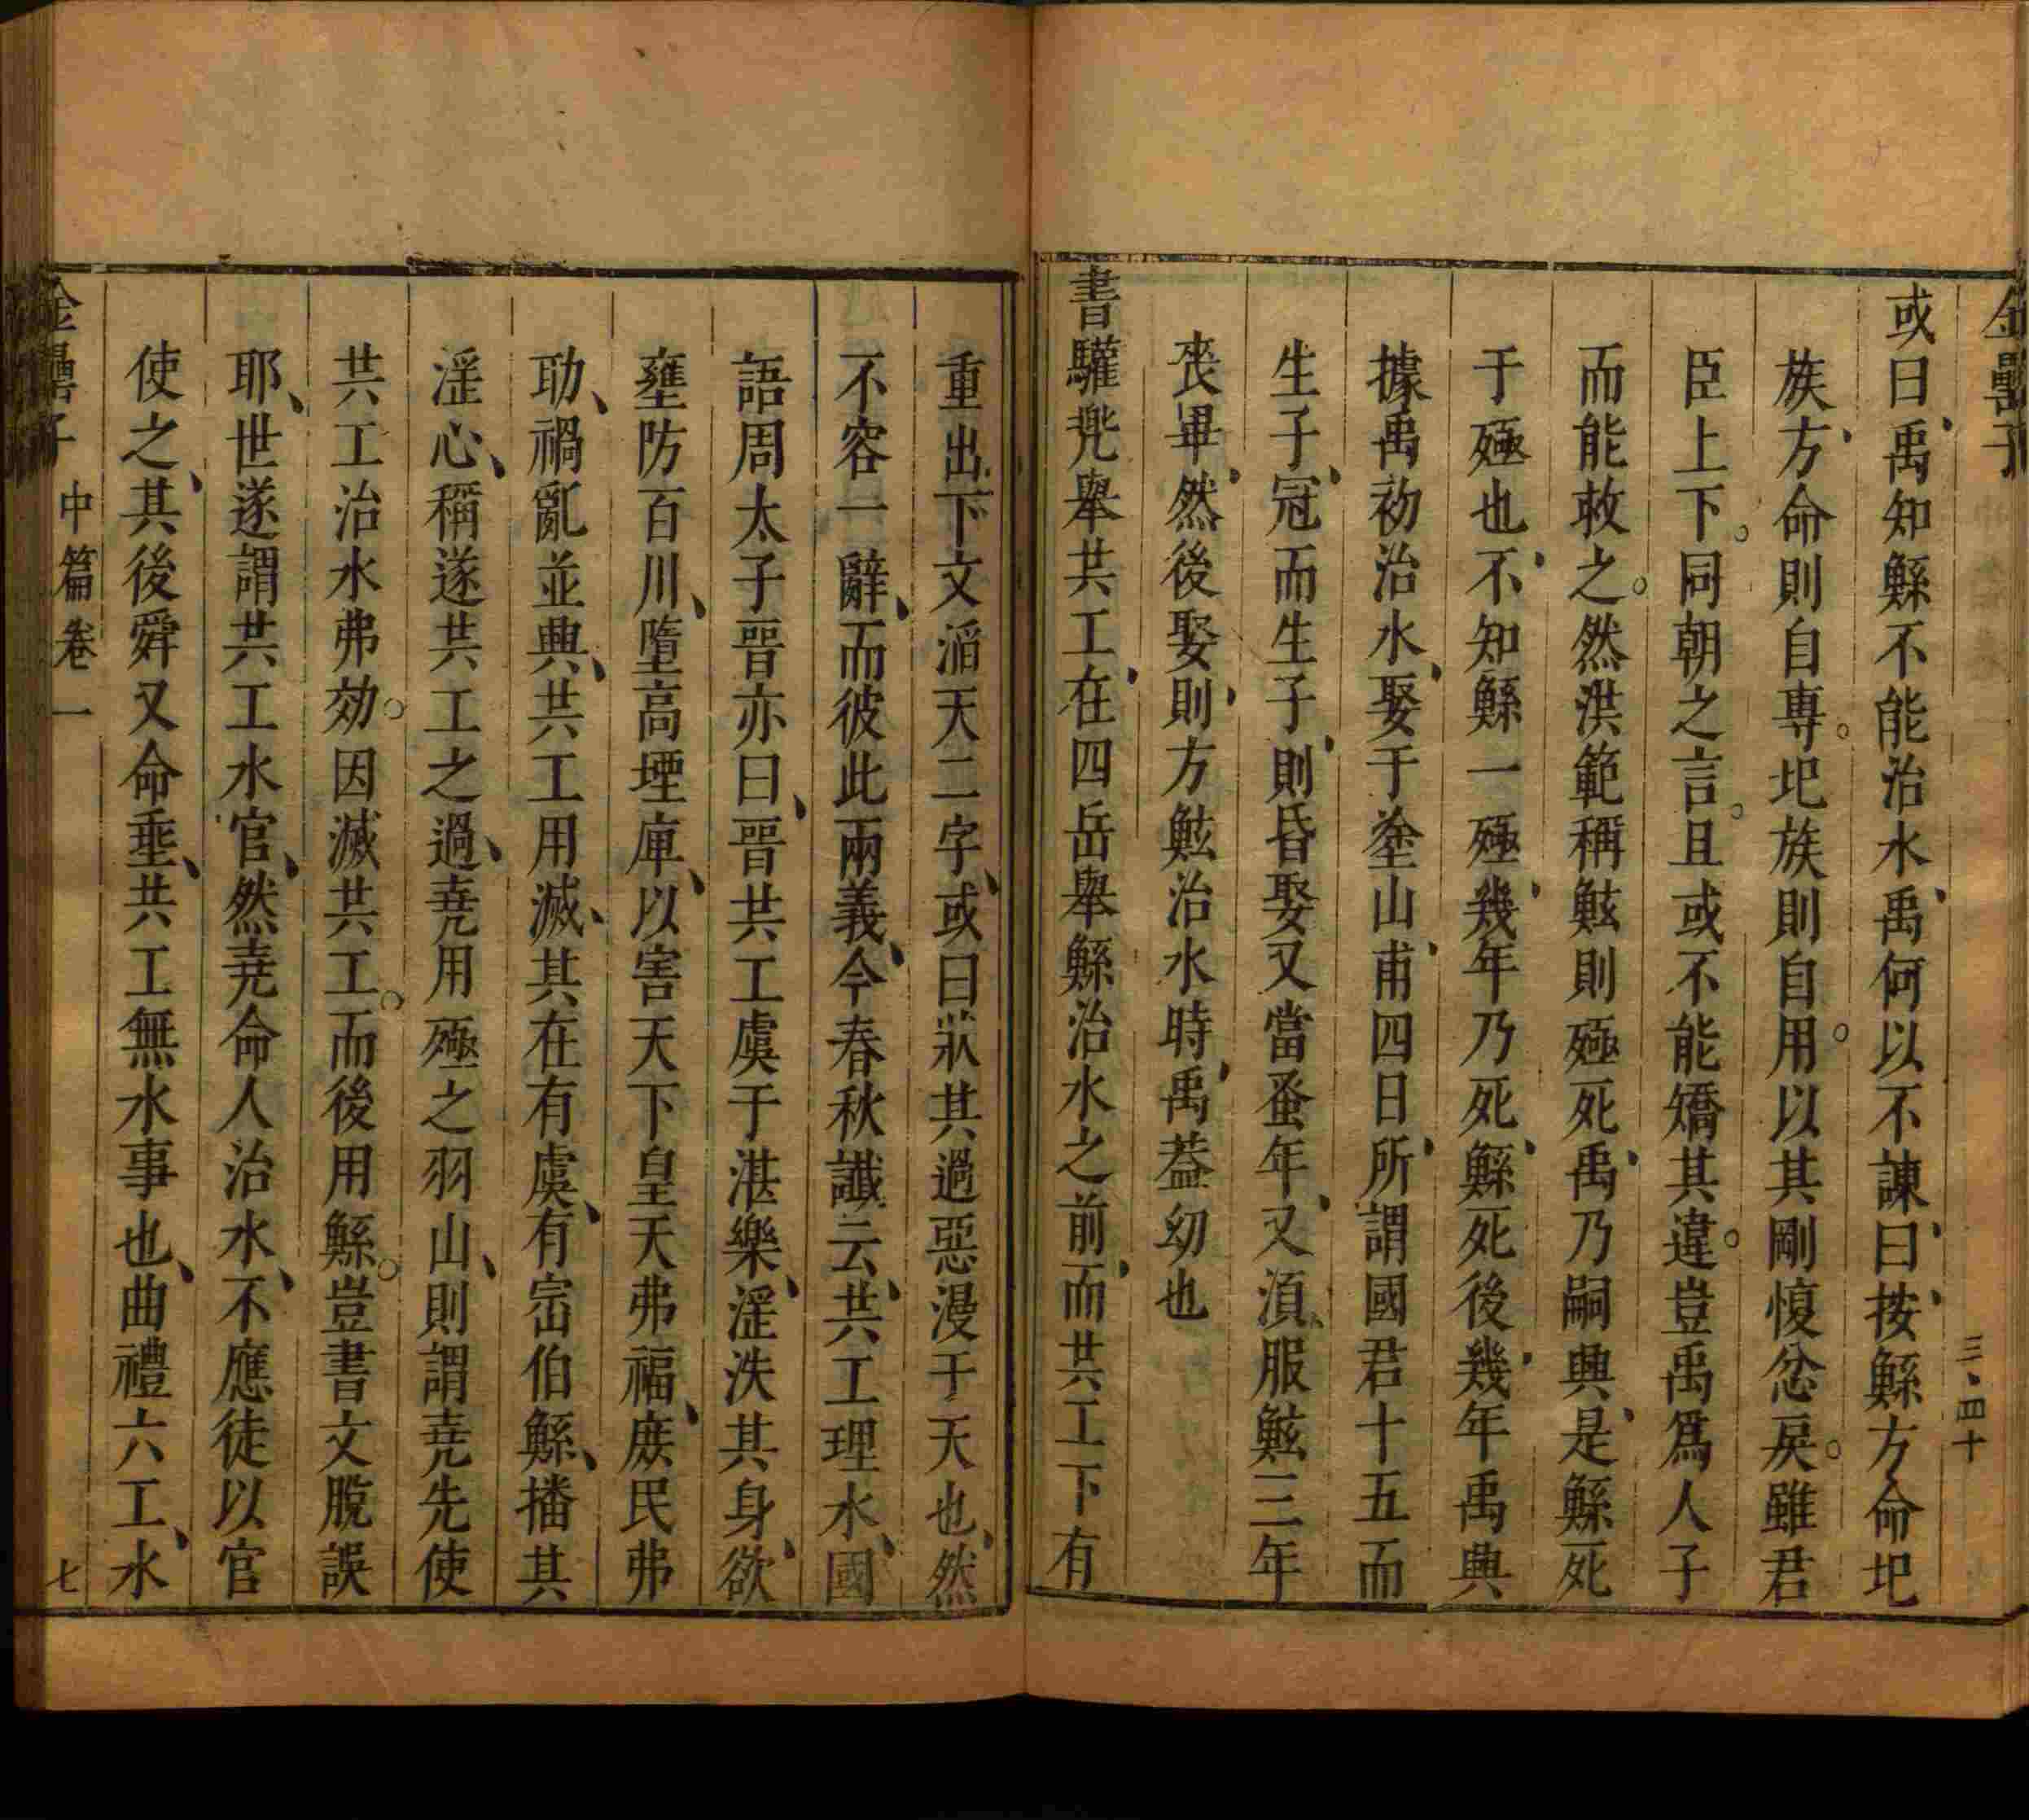 金罍子
三、四十
或曰禹知鯀不能治水禹何以不諫曰按鯀方命圮
族方命則自專圮族則自用以其剛愎忿戾雖君
臣上下同朝之言且或不能矯其違豈禹爲人子
而能救之然洪範稱鮌則殛死禹乃嗣興是鯀死
于殛也不知鯀一殛幾年乃死鯀死後幾年禹興
據禹初治水娶于塗山甫四日所謂國君十五而
生子冠而生子則昏娶又當蚤年又湏服鮌三年
喪畢然後娶則方鮌治水時禹葢幼也
書驩兠舉共工在四岳舉鯀治水之前而共工下有
重出下文滔天二字或曰狀其過惡漫于天也然
不容一辭而彼此兩義今春秋讖云共工理水國
語周太子晉亦曰晉共工虞于湛樂淫泆其身欲
壅防百川墮高堙庳以害天下皇天弗福庶民弗
助禍亂並興共工用滅其在有虞有崈伯鯀播其
淫心稱遂共工之過堯用殛之羽山則謂堯先使
共工治水弗効因滅共工而後用鯀豈書文脫誤
耶世遂謂共工水官然堯命人治水不應徒以官
使之其後舜又命垂共工無水事也曲禮六工水
金罍子 中篇卷一 七